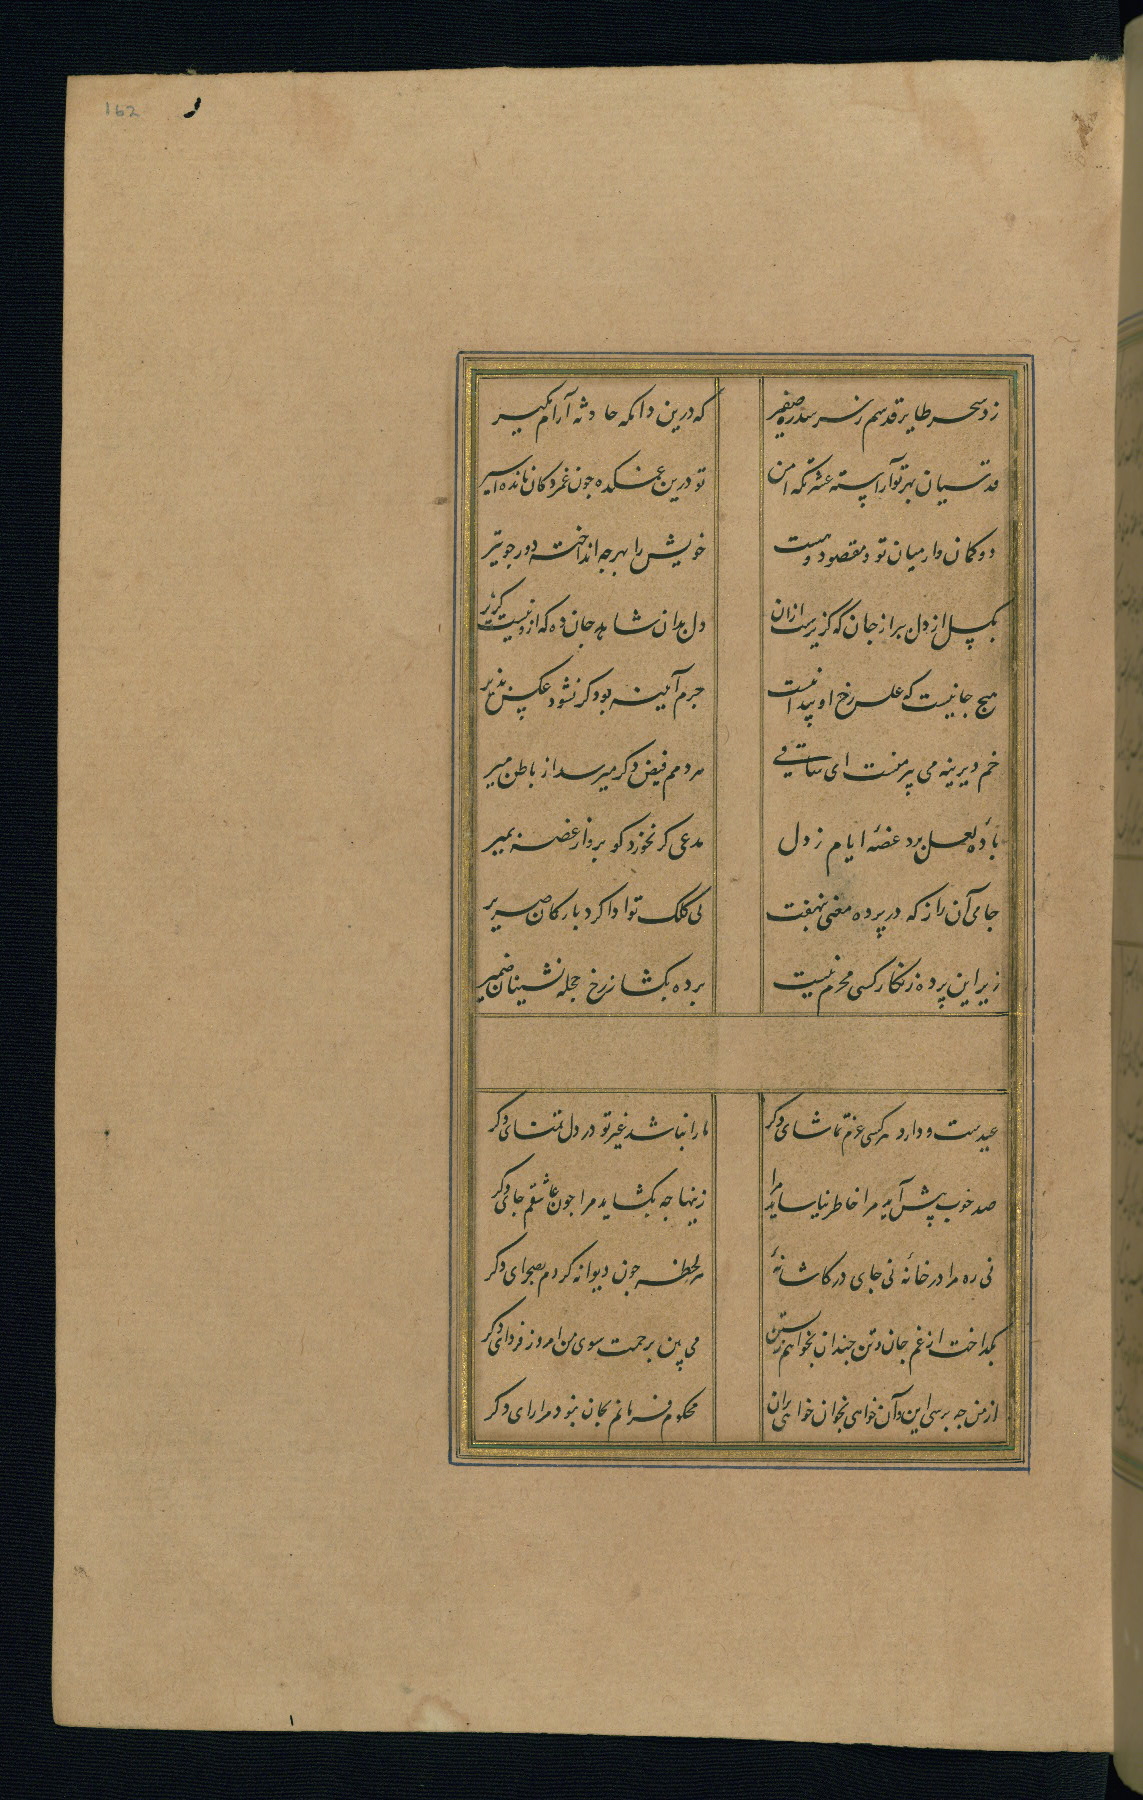 162
زد سحر طایر قدسم ز سر سدره صفیر
که درین دامکه حادثه آرام مکیر
قدسیان بهر تو آراسته عشرتکه امن
تو درین غمکده جون غمزدکان مانده اسیر
دو کمان وار میان تو و مقصود و هست
خویش را بهر جه انداختۀ دور جو تیر
بکسل از دل ببر از جان که کزیرست ازان
دل بدان شاهد جان ده که ازو نیست کزیر
هیچ جا نیست که عکس رخ او پیدا نیست
جرم آیینه بود کر نشود عکس پذیر
خم دیرینه می پیر مغنست ای ساقی
هر دمم فیض دکر میرسد از باطن پیر
بادۀ لعل برد غصۀ ایام ز دل
مدعی کر نخورد کو برو از غصه بمیر
جامی آن راز که در پرده معنی بنهفت
نی کلک تو ادا کرد بارکان صریر
زیر این پرده زنکار کسی محرم نیست
برده بکشا ز رخ حجله نشینان ضمیر
عیدست و دارد هر کسی عزم تماشای دکر
ما را نباشد غیر تو در دل تمنای دکر
صد خوب پیش آید مرا خاطر نیاساید مرا
زینها جه بکشاید مرا جون عاشقم جای دکر
نی ره مرا در خانۀ نی جای در کاشانۀ
هر لحظه جون دیوانه کردم بصحرای دکر
بکداخت از غم جان و تن جندان نخواهم زیستن
می بین برحمت سوی من امروز فردای دکر
از من جه برسی این و آن خواهی بخوان خواهی بران
محکوم فرمانم بجان نبود مرا رای دکر